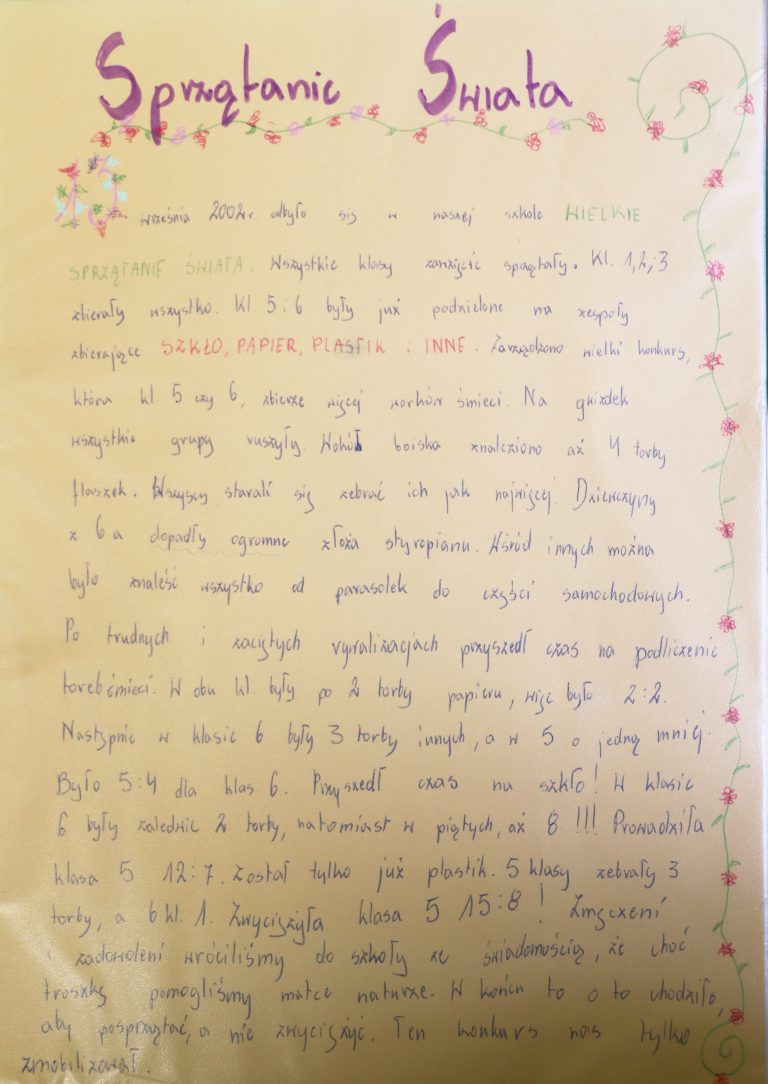 Sprzątanie Świata
13 września 2002r. odbyło się w naszej szkole WIELKIE
SPRZĄTANIE ŚWIATA. Wszystkie klasy zawzięcie sprzątały. Kl. 1,2,i3
zbierały wszystko. Kl 5 i 6 były już podzielone na zespoły
zbierające SZKŁO, PAPIER, PLASTIK i INNE. Zarządzono wielki konkurs,
która kl. 5 czy 6, zbierze więcej worków śmieci. Na gwizdek
wszystkie grupy ruszyły. Wokół boiska znaleziono aż 4 torby
flaszek. Wszyscy starali się zebrać ich jak najwięcej. Dziewczyny
z 6a dopadły ogromne złoża styropianu. Wśród innych można
było znaleść wszystko od parasolek do części samochodowych.
Po trudnych i zaciętych rywalizacjach przyszedł czas na podliczenie
toreb śmieci. W obu kl. były po 2 torby papieru, więc było 2:2.
Następnie w klasie 6 były 3 torby innych, a w 5 o jedną mniej.
Było 5:4 dla klas 6. Przyszedł czas na szkło! W klasie
6 były zaledwie 2 torby, natomiast w piątych, aż 8 !!! Prowadziła
klasa 5 12:7. Został tylko już plastik. 5 klasy zebrały 3
torby, a 6 kl. 1. Zwyciężyła klasa 5 15:8! Zmęczeni
i zadowoleni wróciliśmy do szkoły ze świadomością, że choć
troszkę pomogliśmy matce naturze. W końcu to o to chodziło,
aby posprzątać, a nie zwyciężyć. Ten konkurs nas tylko
zmobilizował.